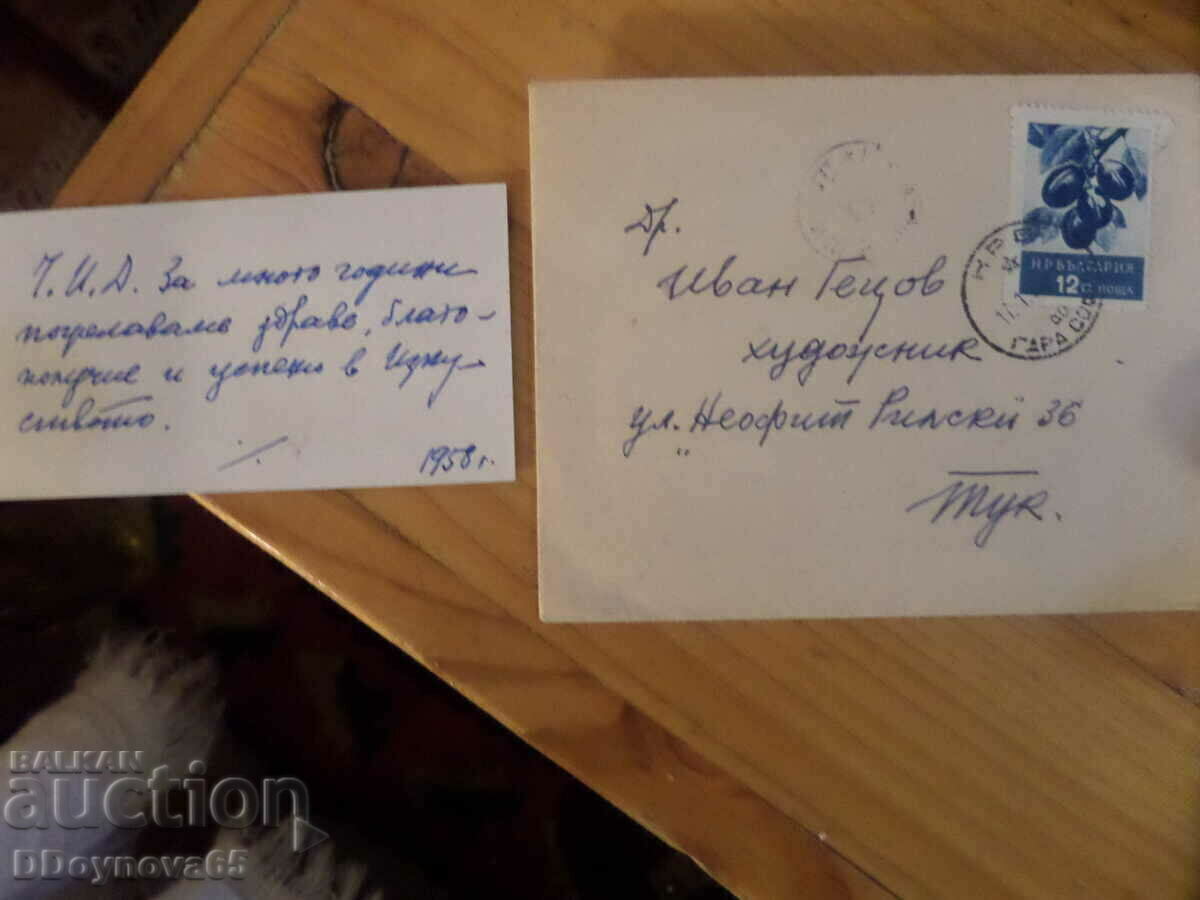 Ч.И.Д. За много години
пожелаваме здраве, благо-
получие и успехи в Изку-
ството.
1958 г.
Др.
Иван Гецов
художник
ул. "Неофит Рилски 36
Тук.
НР БЪЛГАРИЯ
12 СТ. ПОЩА
ГАРА СОФ
BALKAN
auction
DDoynova65